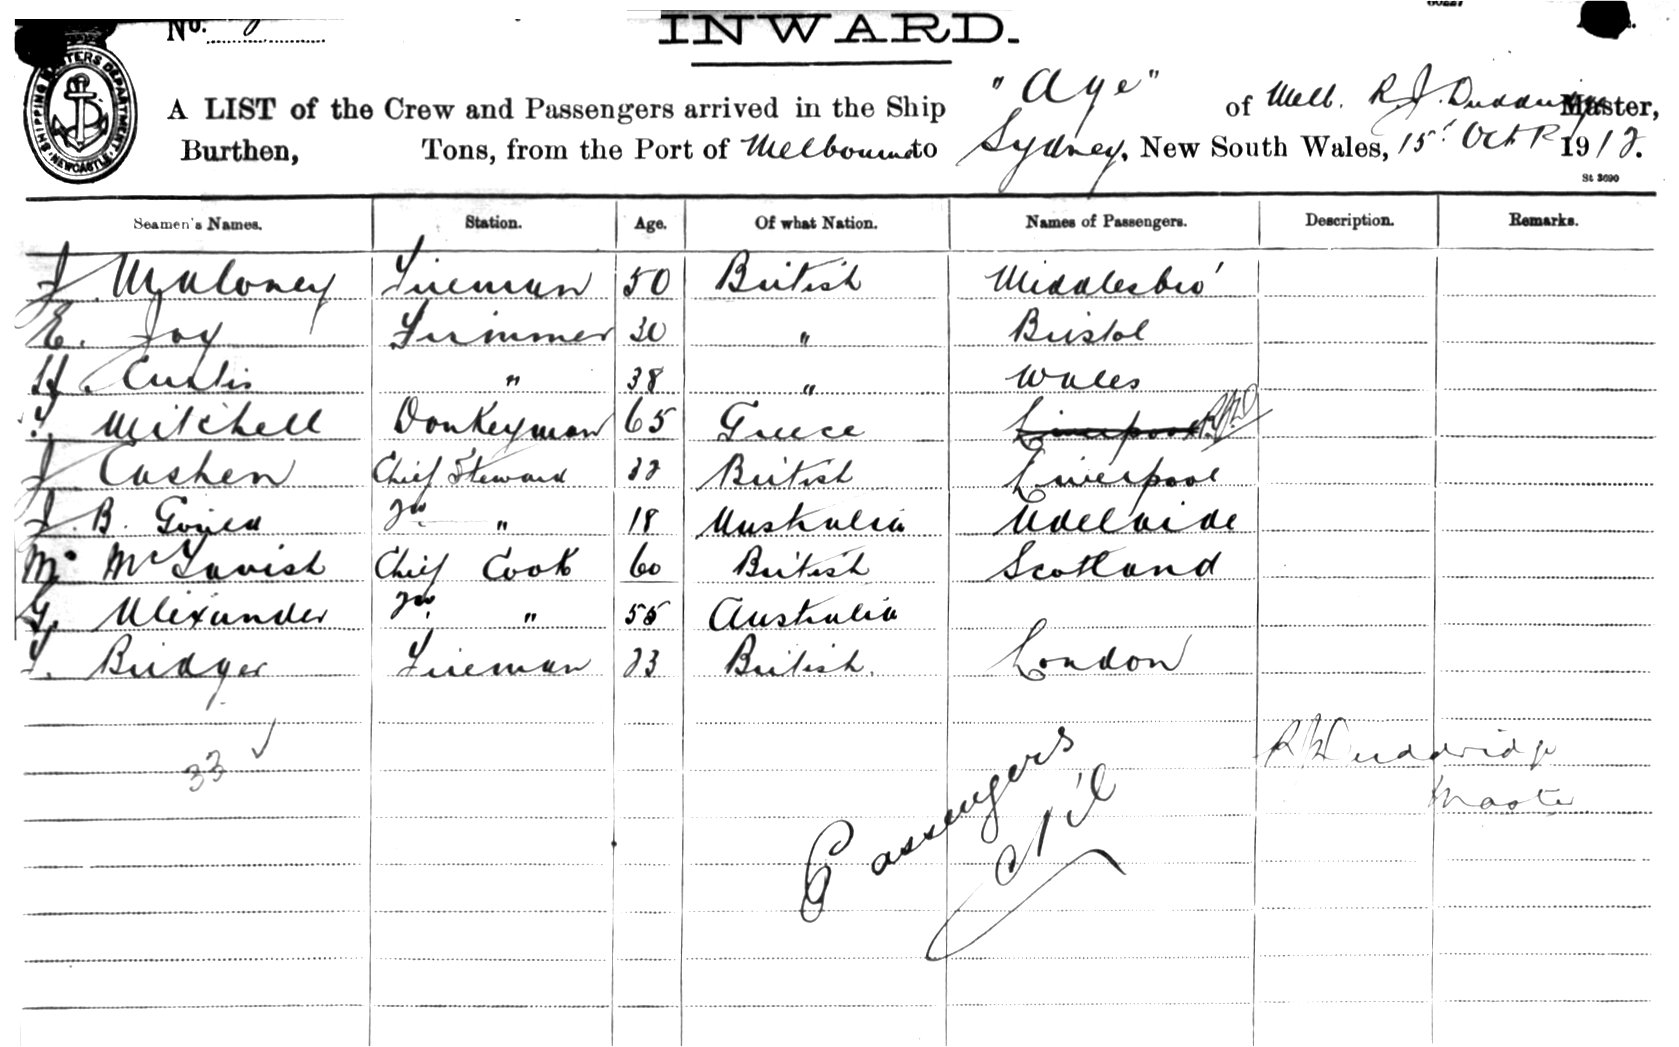 No.
INWARD.
SHIPPING MASTERS DEPARTMENT. NEWCASTLE
A LIST of the Crew and Passengers arrived in the Ship "Aye" of Melb. Master,
Burthen, Tons, from the Port of Melbourne to Sydney, New South Wales, 15th Octr 1912.
St 3090
Seamen's Names. Station. Age. Of what Nation. Names of Passengers. Description. Remarks.
J. Maloney Fireman 50 British Middlesbro'
E. Joy Trimmer 30 " Bristol
H. Curtis " 38 " Wales
Mitchell Donkeyman 65 Greece Liverpool
J Cashen Chief Steward British Liverpool
J. B. 2nd " 18 Australia Adelaide
Mc McTavish Chief Cook 60 British Scotland
G. Alexander 2nd " 55 Australia
T. Bridger Fireman 23 British. London
33
Passengers
Nil
R Duddridge
Master